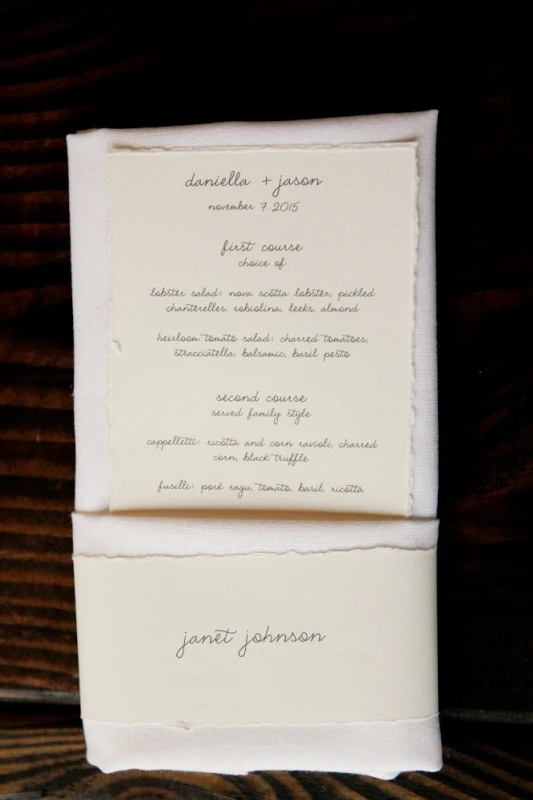 daniella + jason
november 7. 2015
first course
choice of
lobster salad: nova scotia lobster, pickled
chanterelles, robiolina, leeks, almond
heirloom tomato salad: charred tomatoes,
stracciatella, balsamic, basil pesto
second course
served family style
cappelletti: ricotta and corn ravioli, charred
corn, black truffle
fusilli: pork ragu, tomato, basil, ricotta
janet johnson